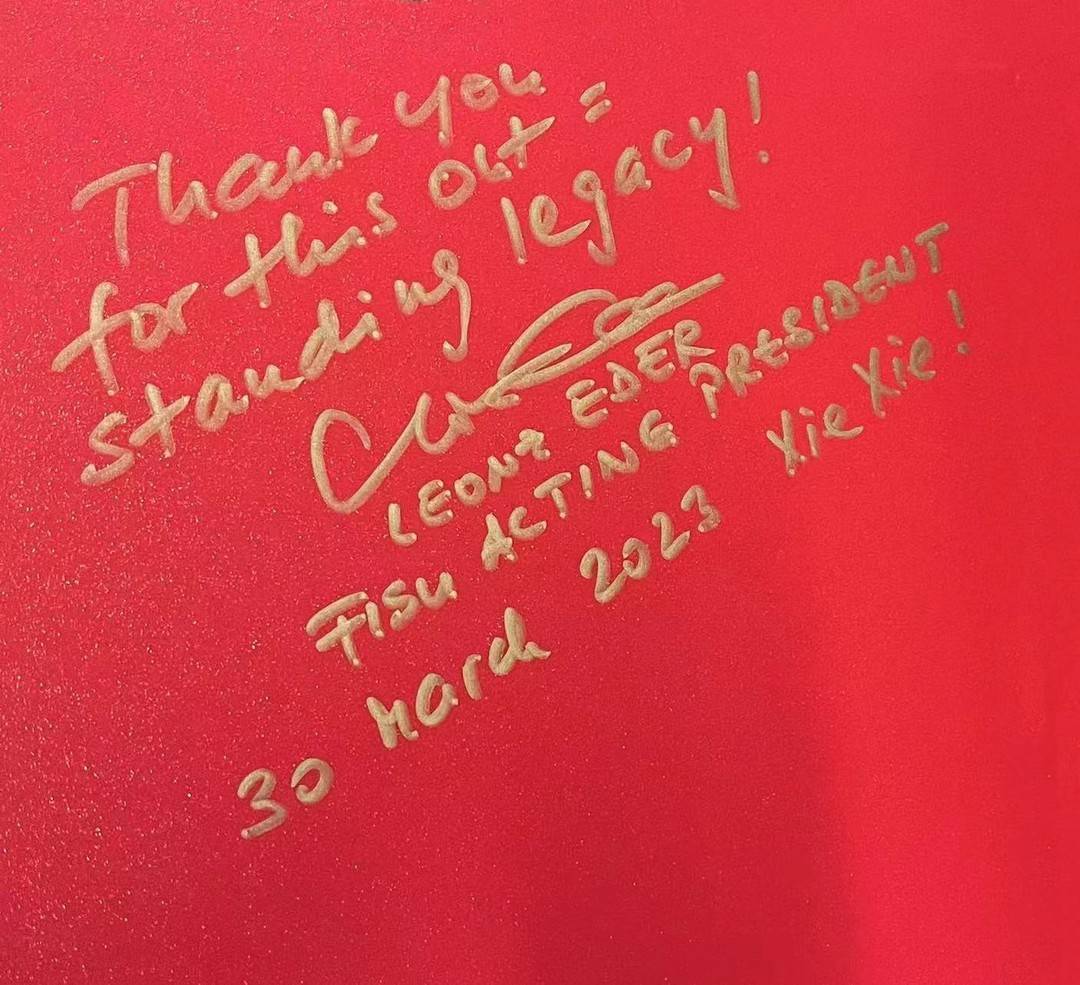 Thank you
for this out=
standing legacy!
LEONZ EDER
FISU ACTING PRESIDENT
30 March 2023 Xie Xie!